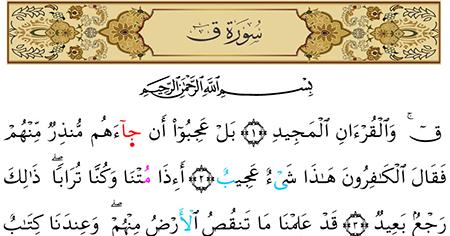 سُورَةُ ق
بِسْمِ اللَّهِ الرَّحْمَٰنِ الرَّحِيمِ
قٓ ۚ وَالْقُرْءَانِ الْمَجِيدِ ﴿١﴾ بَلْ عَجِبُوٓا۟ أَن جَآءَهُم مُّنذِرٌ مِّنْهُمْ
فَقَالَ الْكَافِرُونَ هَٰذَا شَىْءٌ عَجِيبٌ ﴿٢﴾ أَءِذَا مُتْنَا وَكُنَّا تُرَابًا ۖ ذَٰلِكَ
رَجْعٌ بَعِيدٌ ﴿٣﴾ قَدْ عَلِمْنَا مَا تَنقُصُ الْأَرْضُ مِنْهُمْ ۖ وَعِندَنَا كِتَابٌ